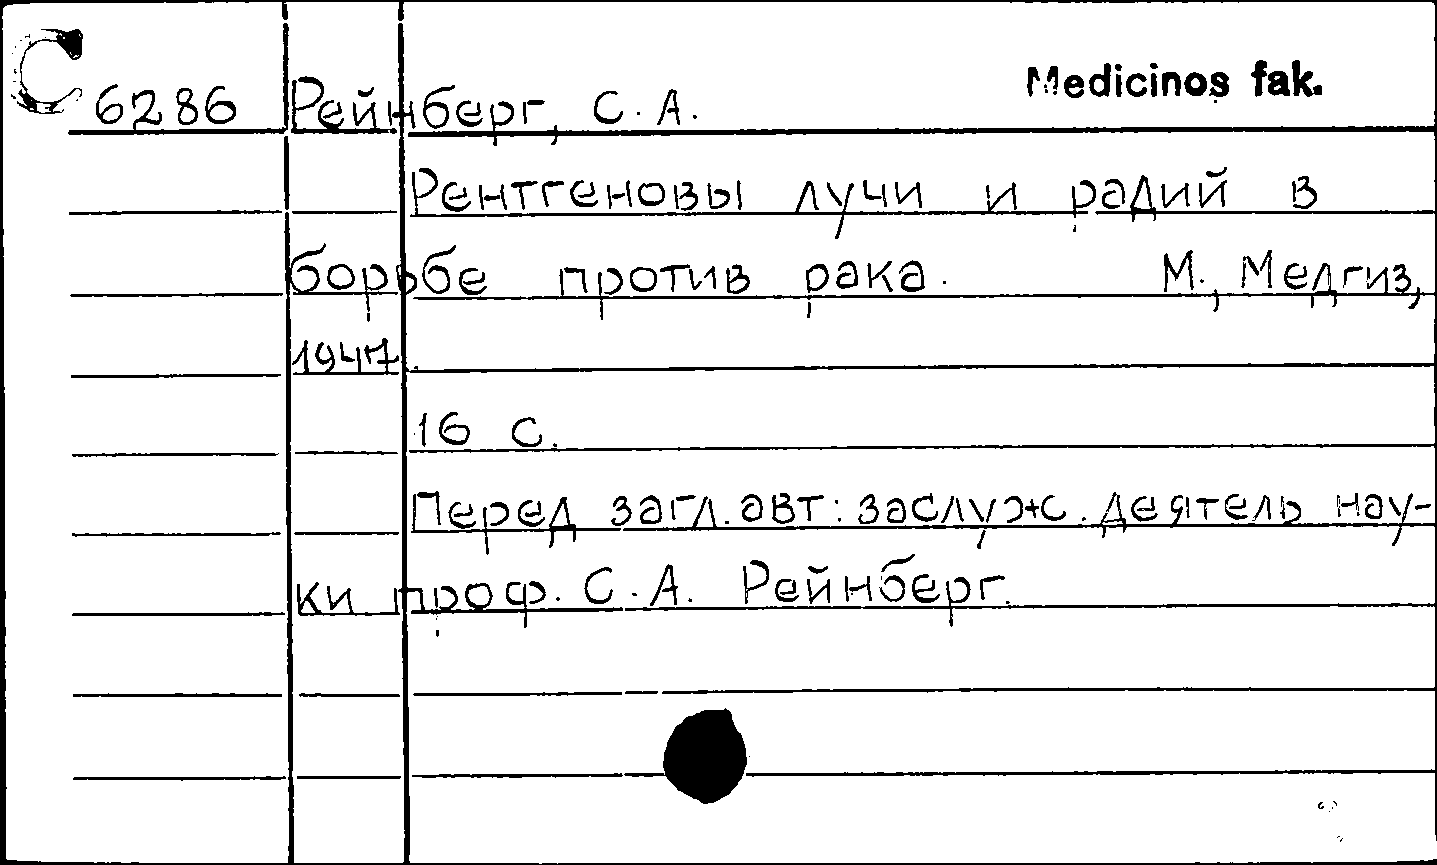 Medicinos fak.
C 6286 Рейнберг, С. А.
Рентгеновы лучи и радий в
борьбе против рака. М., Медгиз,
1947.
16 с.
Перед загл. авт: заслуж. деятель нау-
ки проф. С. А. Рейнберг.